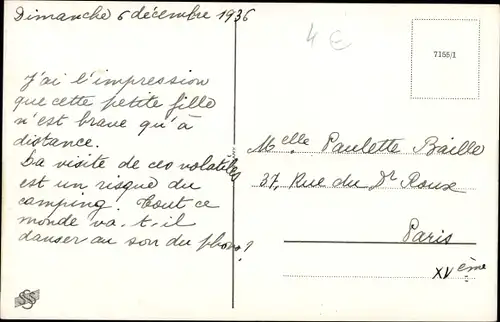 Dimanche 6 décembre 1936
4€
7155/1
J'ai l'impression
que cette petite fille
n'est brave qu'à
distance.
La visite de ces volatiles
est un risque du
camping. Tout ce
monde va-t-il
danser au son du phono?
Melle Paulette Baille
37, Rue du Dr Roux
Paris
XVème
SS